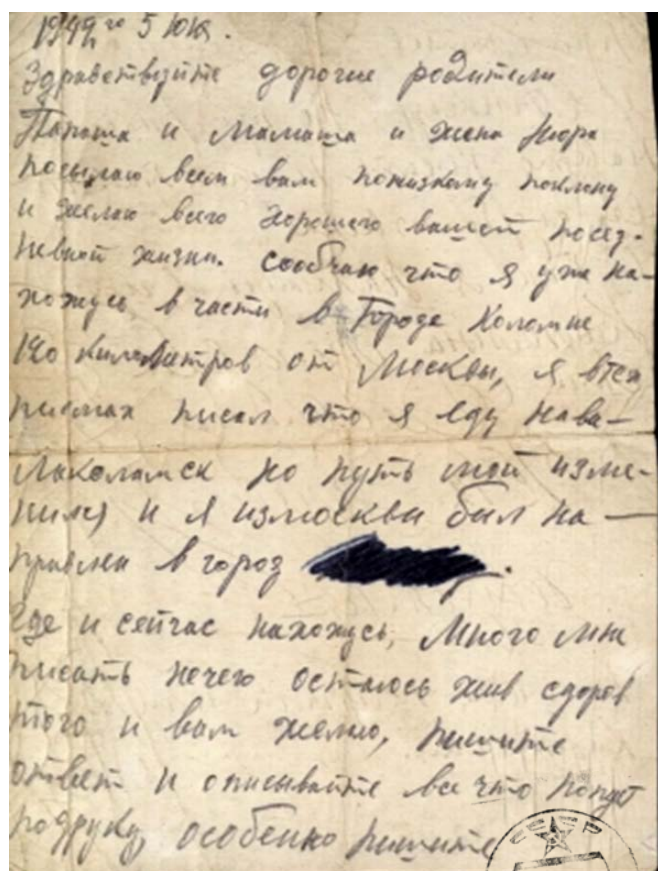 Здравствуйте дорогие родители
Папаша и Мамаша и жена Нюра
посылаю всем вам понизкому поклону
и желаю всего хорошего вашей посез-
невной жизни. сообчаю что я уже на-
хожусь в части в Городе Коломне
120 километров от Москвы, я втех
писмах писал что я еду нава-
Локоламск но путь мой изме-
нился и я измосквы был на-
правлен в город
Где и сейчас нахожусь, Много мне
писать нечего остаюсь жив сдоров
того и вам желаю, пишите
ответ и описывайте все что попует
подруку, особенно пишите
СССР